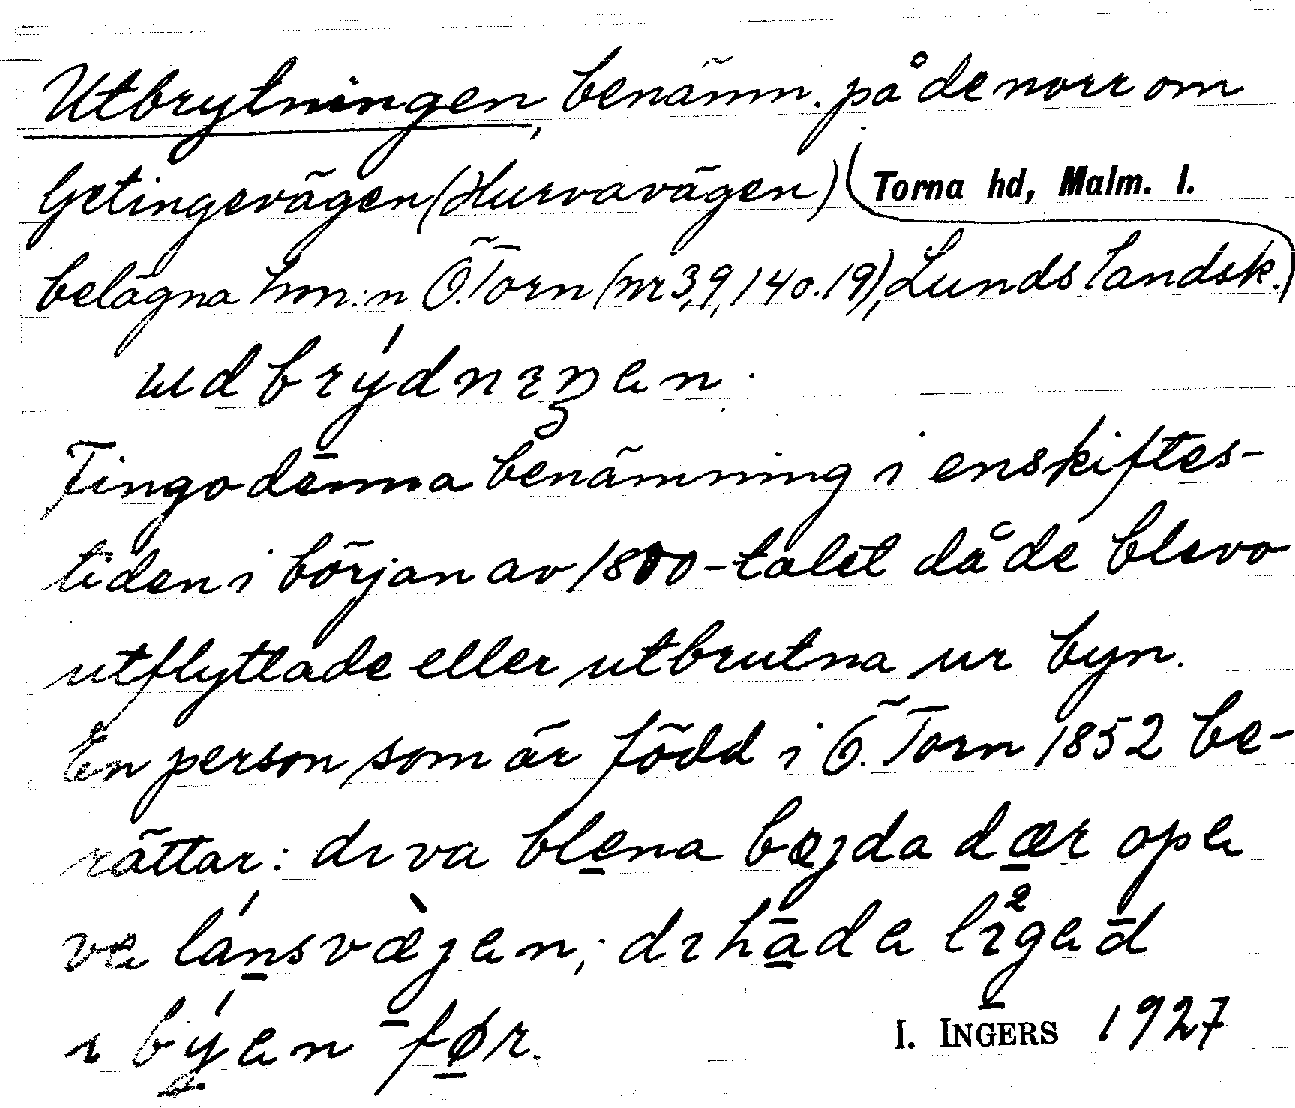 Utbrytningen, benämn. på de norr om
Getingevägen (Hurvavägen) (Torna hd, Malm. l.
belägna hmn:n Ö. Torn (nr 3, 9, 14 o. 19), Lunds landsk.)
udbrýdnɪŋən.
Fingo denna benämning i enskiftes-
tiden i början av 1800-talet då de blevo
utflyttade eller utbrutna ur byn.
En person som är född i Ö. Torn 1852 be-
rättar: dɪ va blena bøjda dær opə
və lánsvæ̀jən; dɪ hadə lɪgəd
ɪ býən før.
I. INGERS 1927